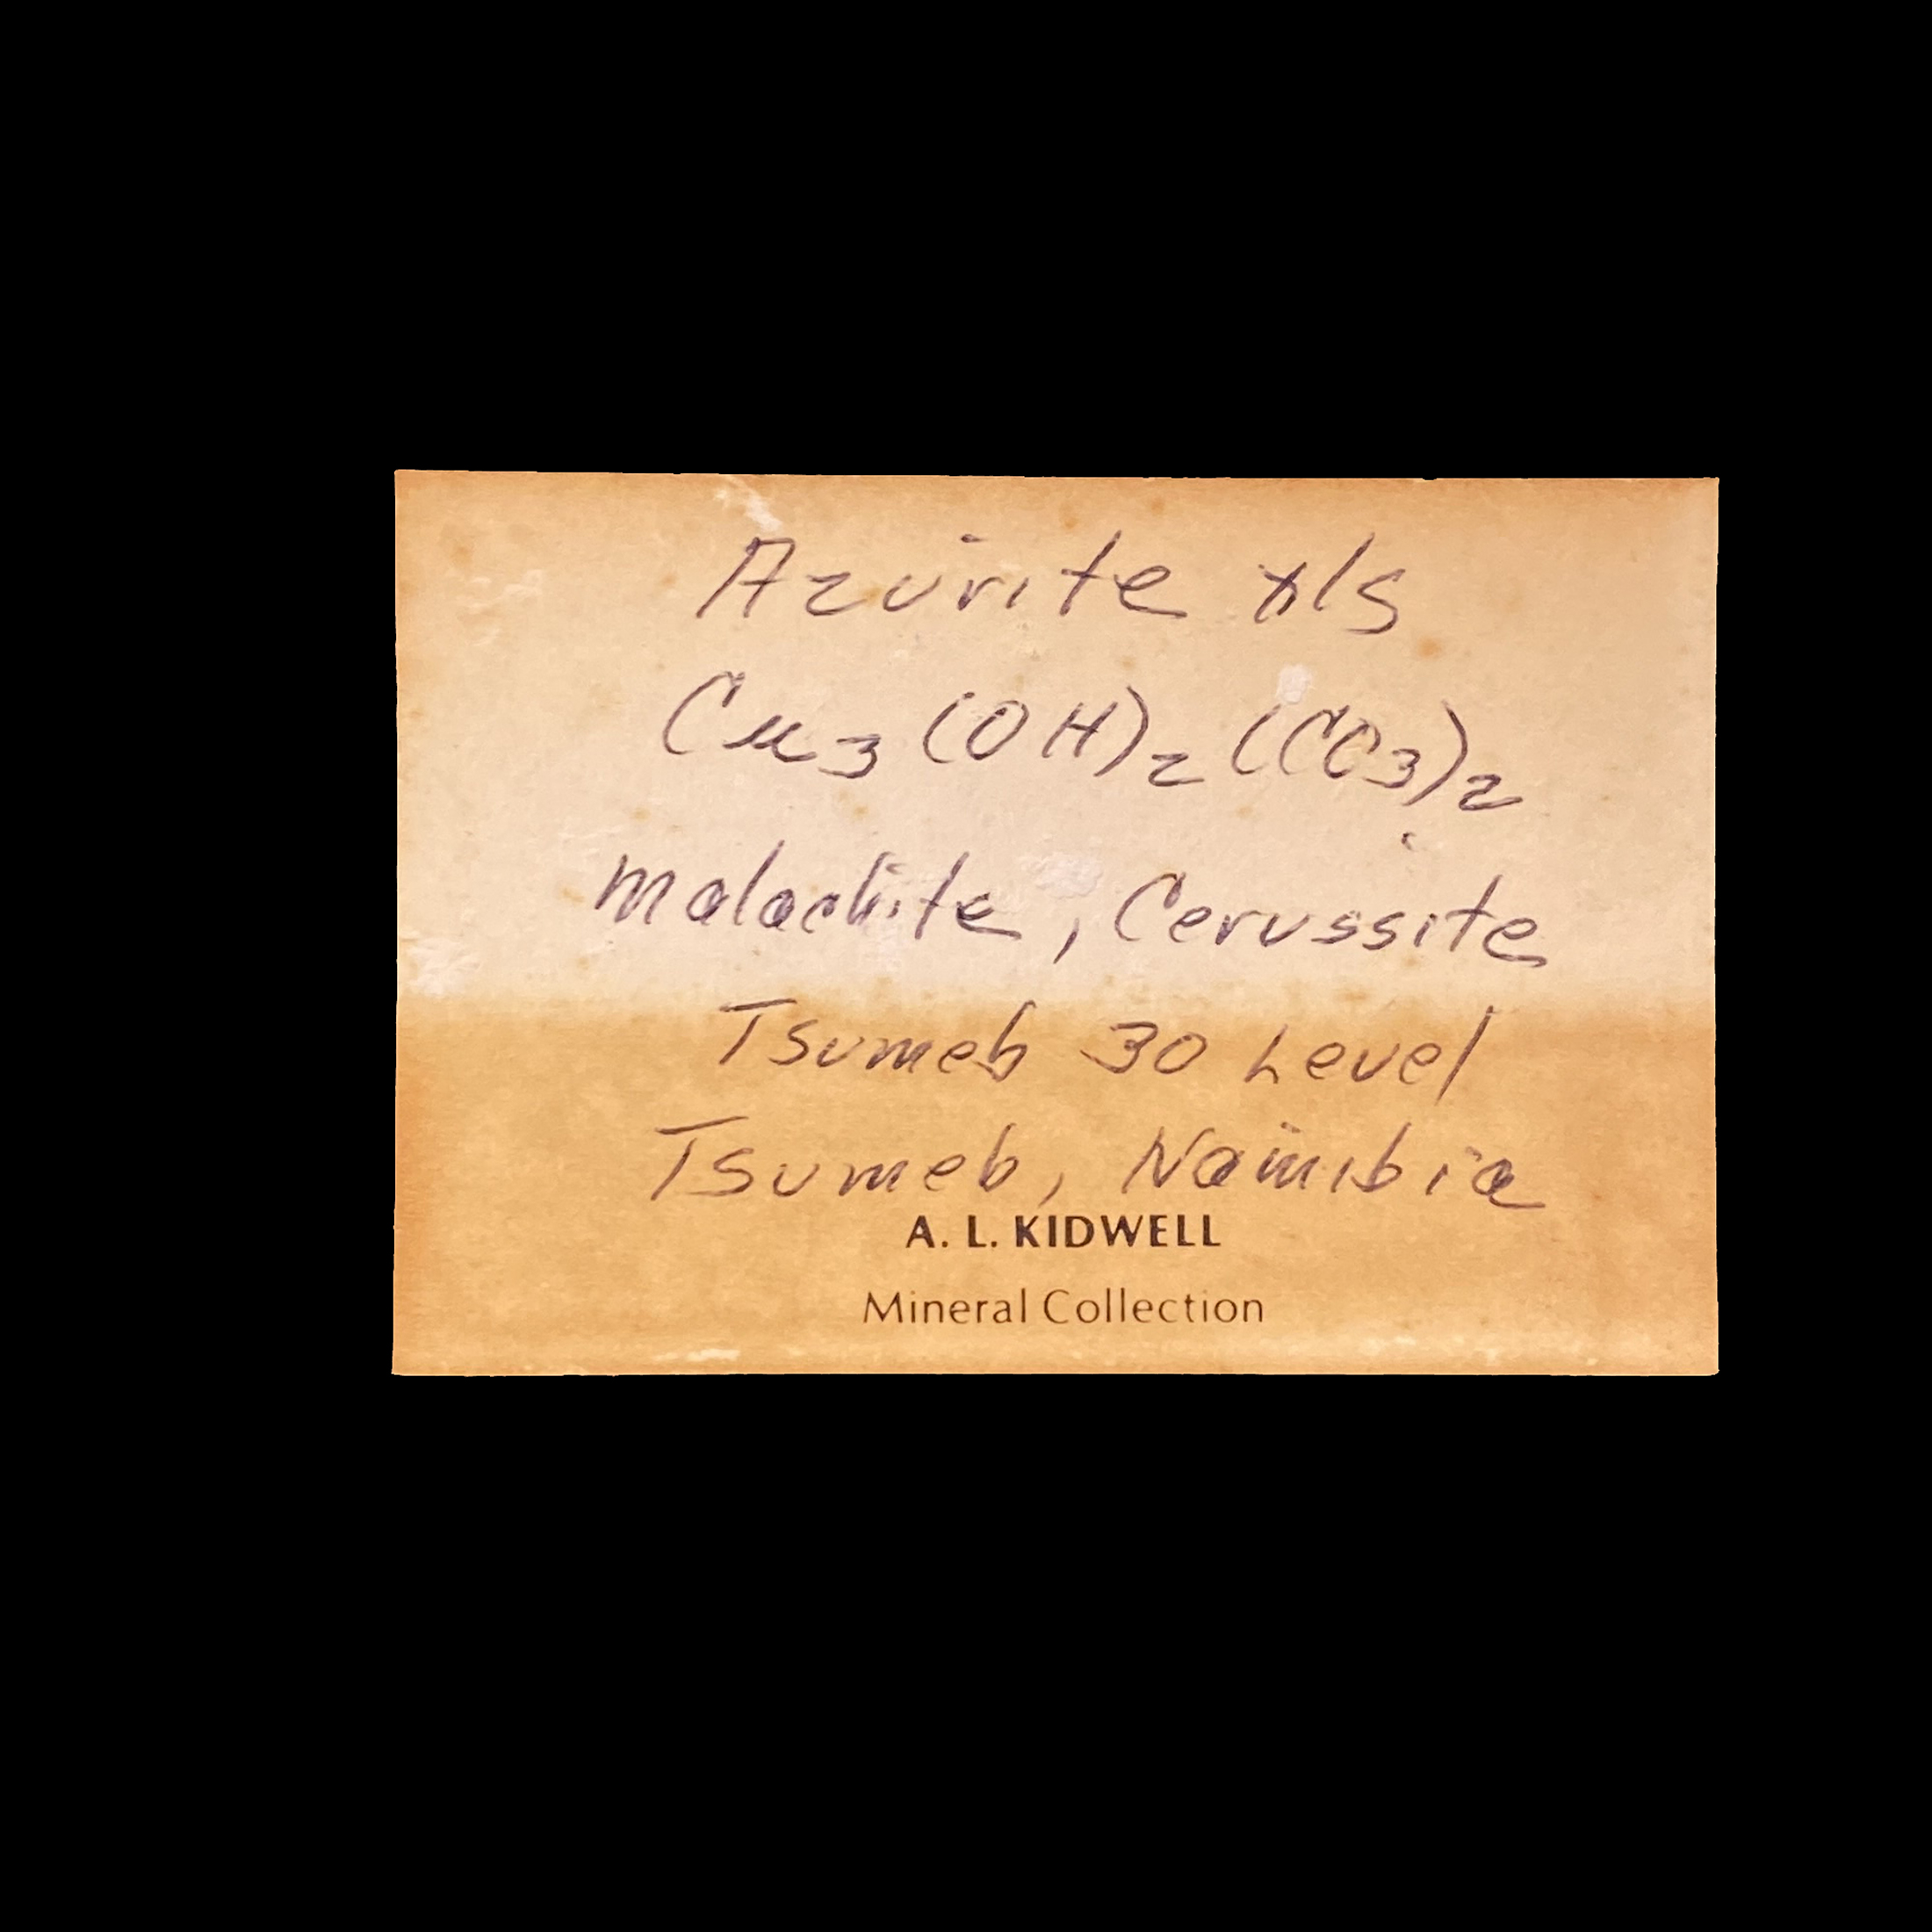 Azurite xls
Cu3(OH)2(CO3)2
Malachite, Cerussite
Tsumeb 30 Level
Tsumeb, Namibia
A. L. KIDWELL
Mineral Collection